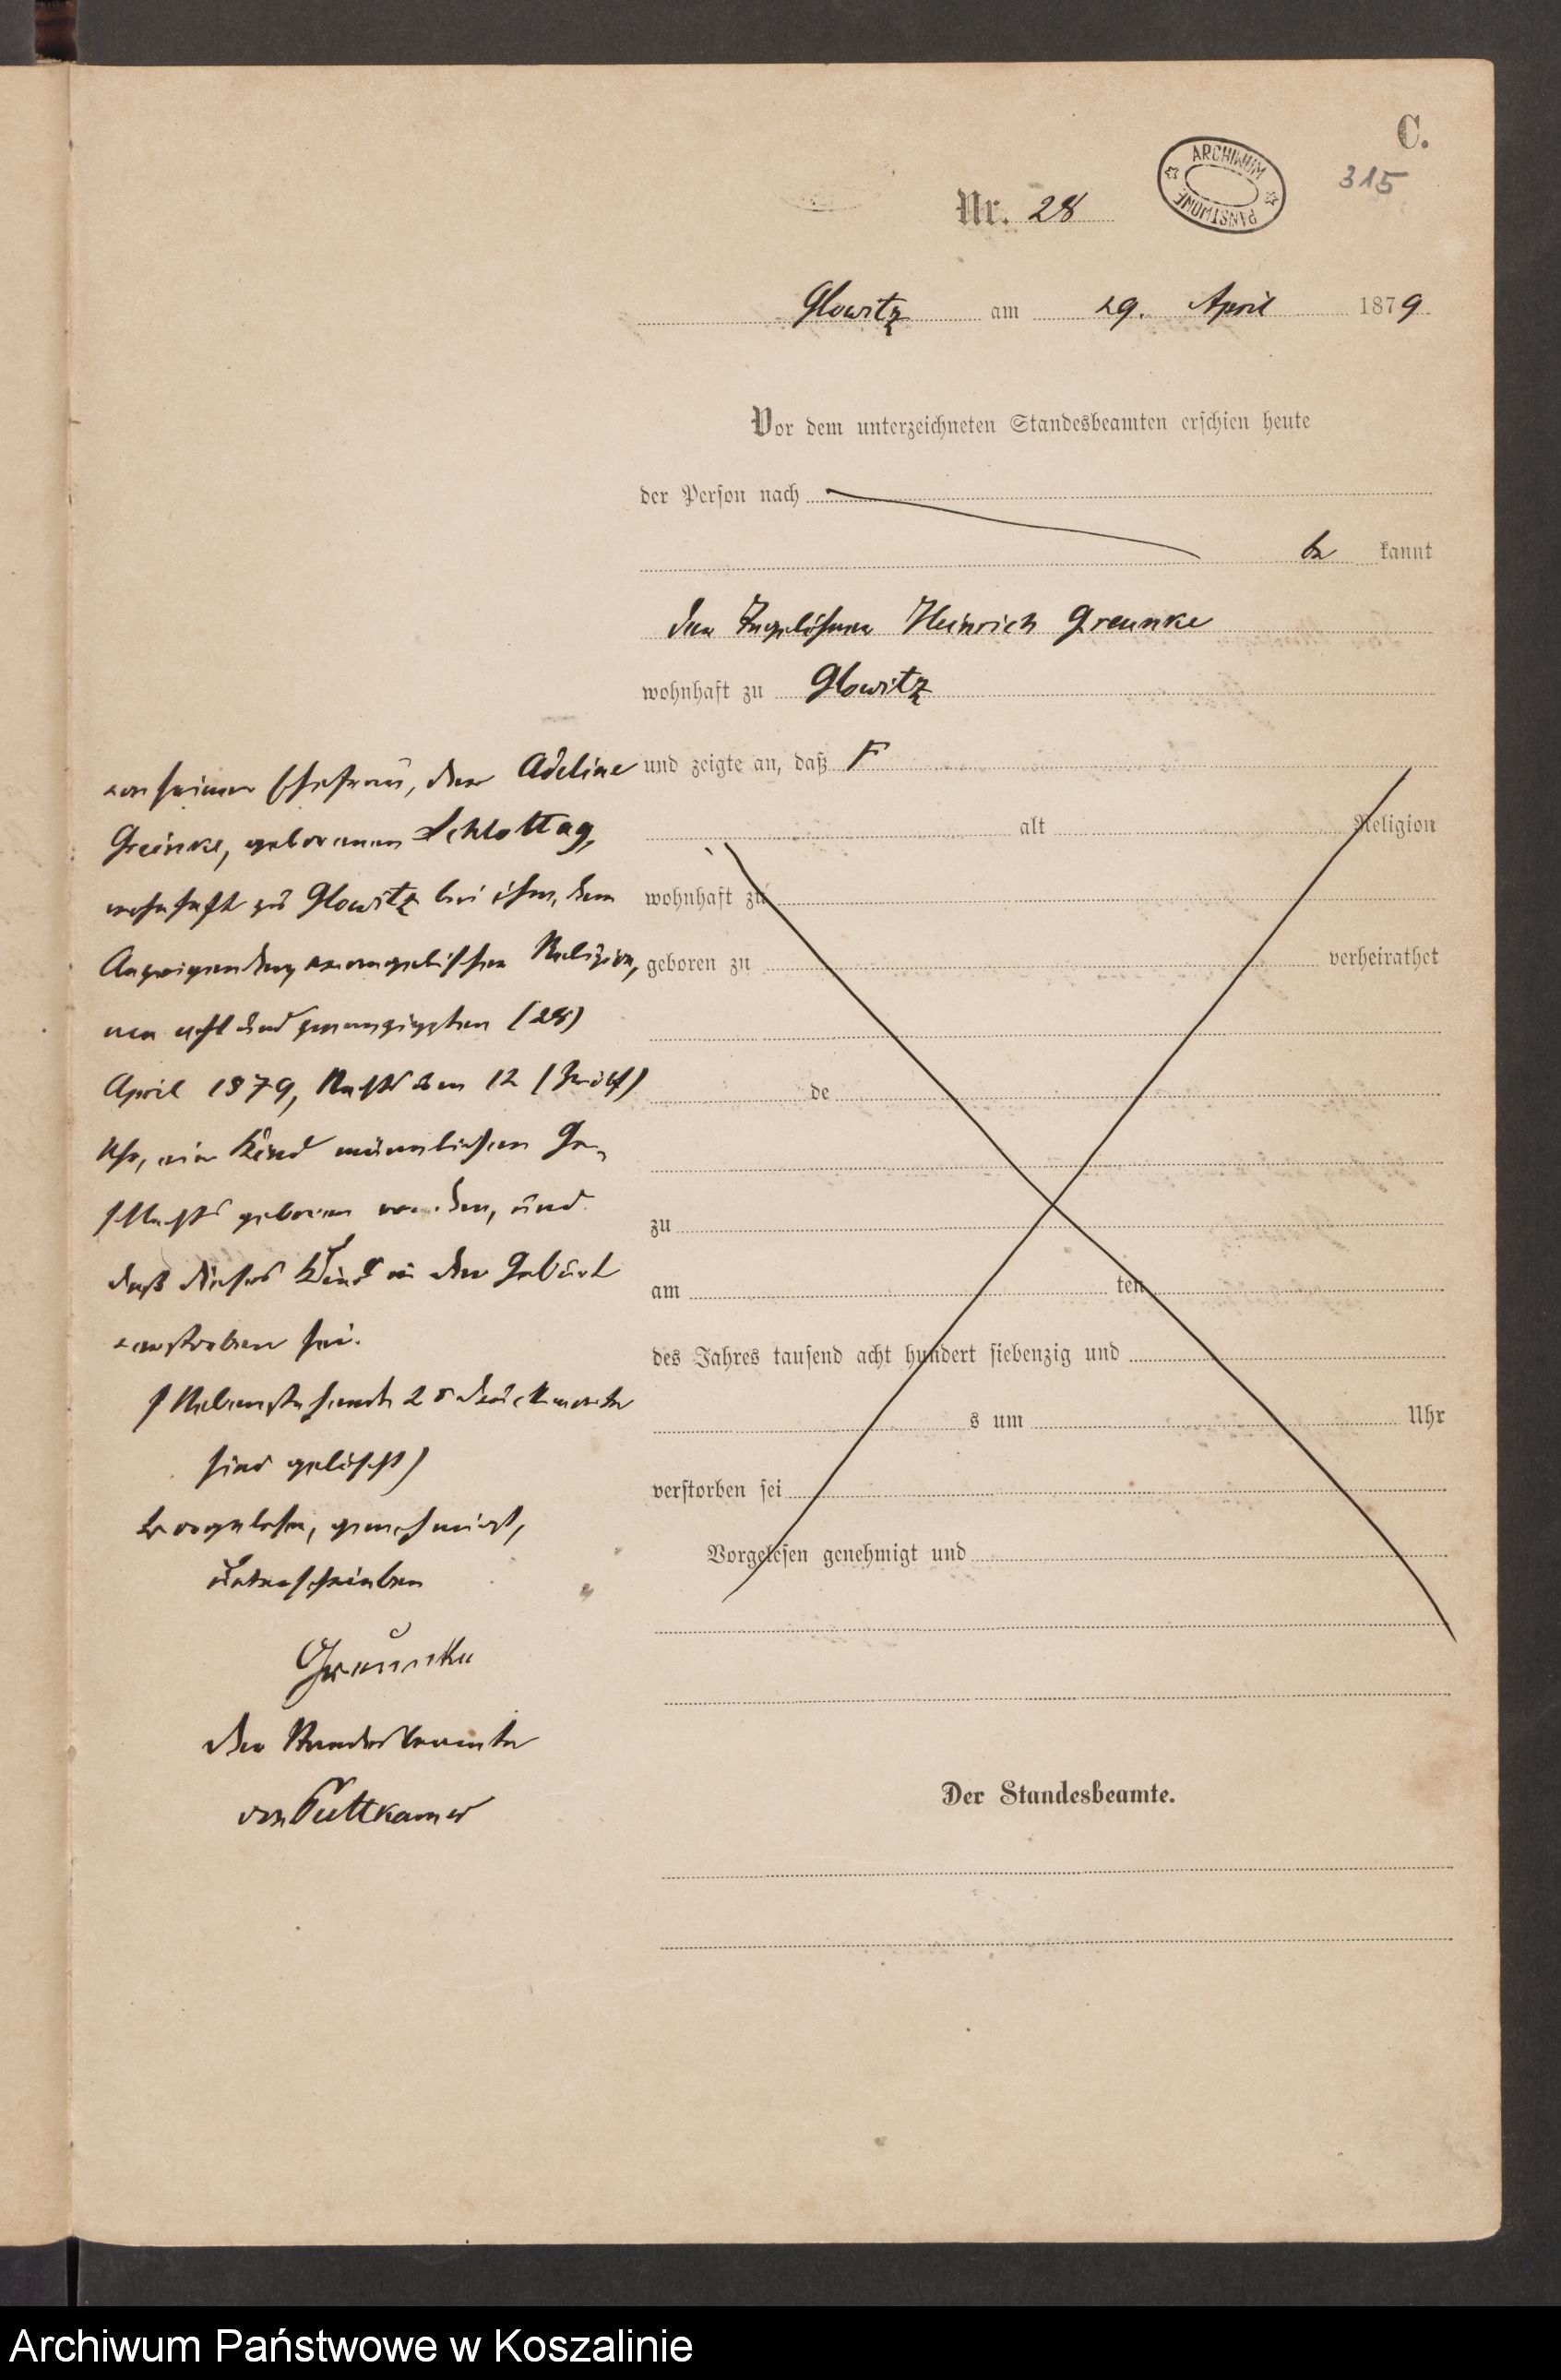 C.
315
ARCHIWUM PAŃSTWOWE
Nr. 28
Glowitz am 29. April 1879
Vor dem unterzeichneten Standesbeamten erschien heute
der Person nach
be kannt
der Tagelöhner Heinrich Greunke
wohnhaft zu Glowitz
und zeigte an, daß F
von seiner Ehefrau, der Adeline
Greunke, geborenen Schlottag,
wohnhaft zu Glowitz bei ihm, dem
Anzeigenden evangelischer Religion,
am acht und zwanzigsten (28)
April 1879, Nachts um 12 (zwölf)
Uhr, ein Kind männlichen Ge-
schlechts geboren worden, und
daß dieses Kind in der Geburt
verstorben sei.
(Nebenstehende 25 Druckworte
sind gelöscht)
Vorgelesen, genehmigt,
unterschrieben
Greuncke
Der Standesbeamte
von Puttkamer
alt Religion
wohnhaft zu
geboren zu verheirathet
de
zu
am ten
des Jahres tausend acht hundert siebenzig und
s um Uhr
verstorben sei
Vorgelesen genehmigt und
Der Standesbeamte.
Archiwum Państwowe w Koszalinie